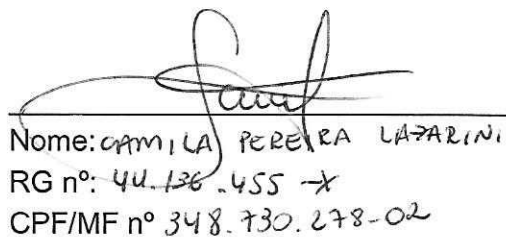 Nome: CAMILA PEREIRA LAZARINI
RG nº: 44.136.455-X
CPF/MF nº 348.730.278-02